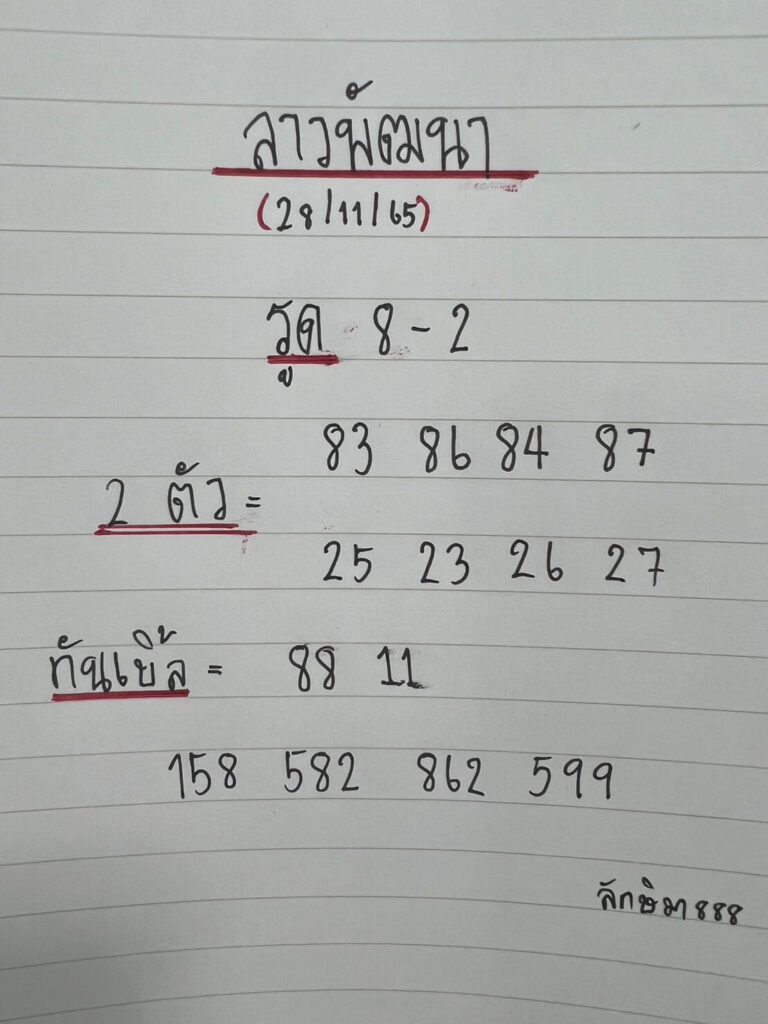 ลาวพัฒนา
(28/11/65)
รูด 8 - 2
83 86 84 87
2 ตัว =
25 23 26 27
ทันเบิ้ล = 88 11
158 582 862 599
ลักษิมา888